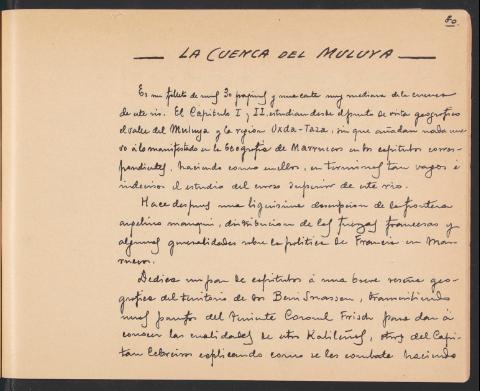 80.
— LA CUENCA DEL MULUYA —
Es un folleto de unas 30 paginas y una carta muy mediana de la cuenca
de este rio. El Capitulo I y II, estudian desde el punto de vista geografico
el valle del Muluya y la region Uxda-Taza, sin que añadan nada nue-
vo á lo manifestado en la Geografia de Marruecos en los capitulos corres-
pondientes, haciendo como en ellos, en terminos tan vagos é
indecisos el estudio del curso superior de este rio.
Hace despues una ligerisima descripcion de la frontera
argelino marroqui, distribucion de las fuerzas francesas y
algunas generalidades sobre la politica de Francia en Marr-
uecos.
Dedica un par de capitulos á una breve reseña geo-
grafica del territorio de los Beni Snassen, transmitiendo
unos parrafos del Teniente Coronel Frisch para dar á
conocer las cualidades de estos Kabileños, otros del Capi-
tan Cebreiros esplicando como se les combate haciendo